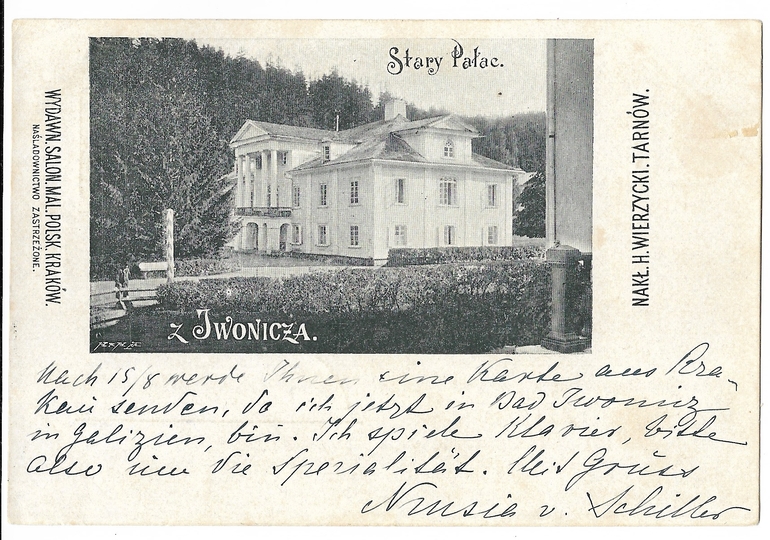 Stary Pałac.
WYDAWN. SALON. MAL. POLSK. KRAKÓW.
NAŚLADOWNICTWO ZASTRZEŻONE.
NAKŁ. H. WIERZYCKI. TARNÓW.
z IWONICZA.
Nach 15/8 werde Ihnen eine Karte aus Kra-
kau senden, da ich jetzt in Bad Iwonicz
in Galizien, bin. Ich spiele Klavier, bitte
also um die Spezialität. Mit Gruss
v. Schiller